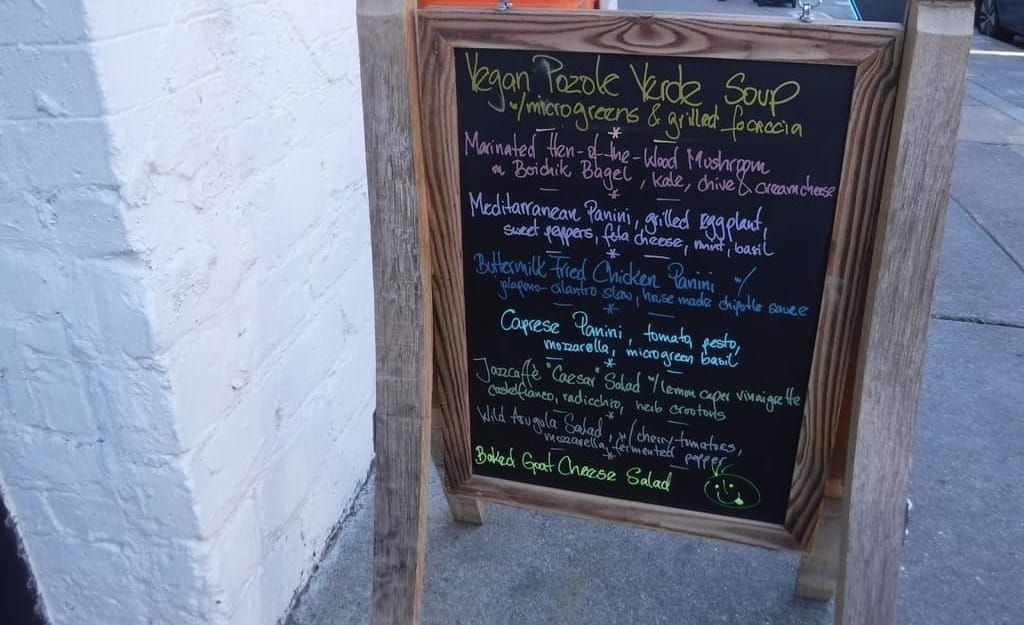 Vegan Pozole Verde Soup
w/microgreens & grilled focaccia
*
Marinated Hen-of-the-Wood Mushroom
on Boichik Bagel, kale, chive & creamcheese
*
Meditarranean Panini, grilled eggplant,
sweet peppers, feta cheese, mint, basil
*
Buttermilk Fried Chicken Panini w/
jalapeno-cilantro slaw, house made chipotle sauce
*
Caprese Panini, tomato, pesto,
mozzarella, microgreen basil
*
Jazzcaffè "Caesar" Salad w/lemon caper vinaigrette
castelfranco, radicchio, herb croutons
*
Wild Arugola Salad, w/cherry-tomatoes,
mozzarella, fermented pepper
*
Baked Goat Cheese Salad